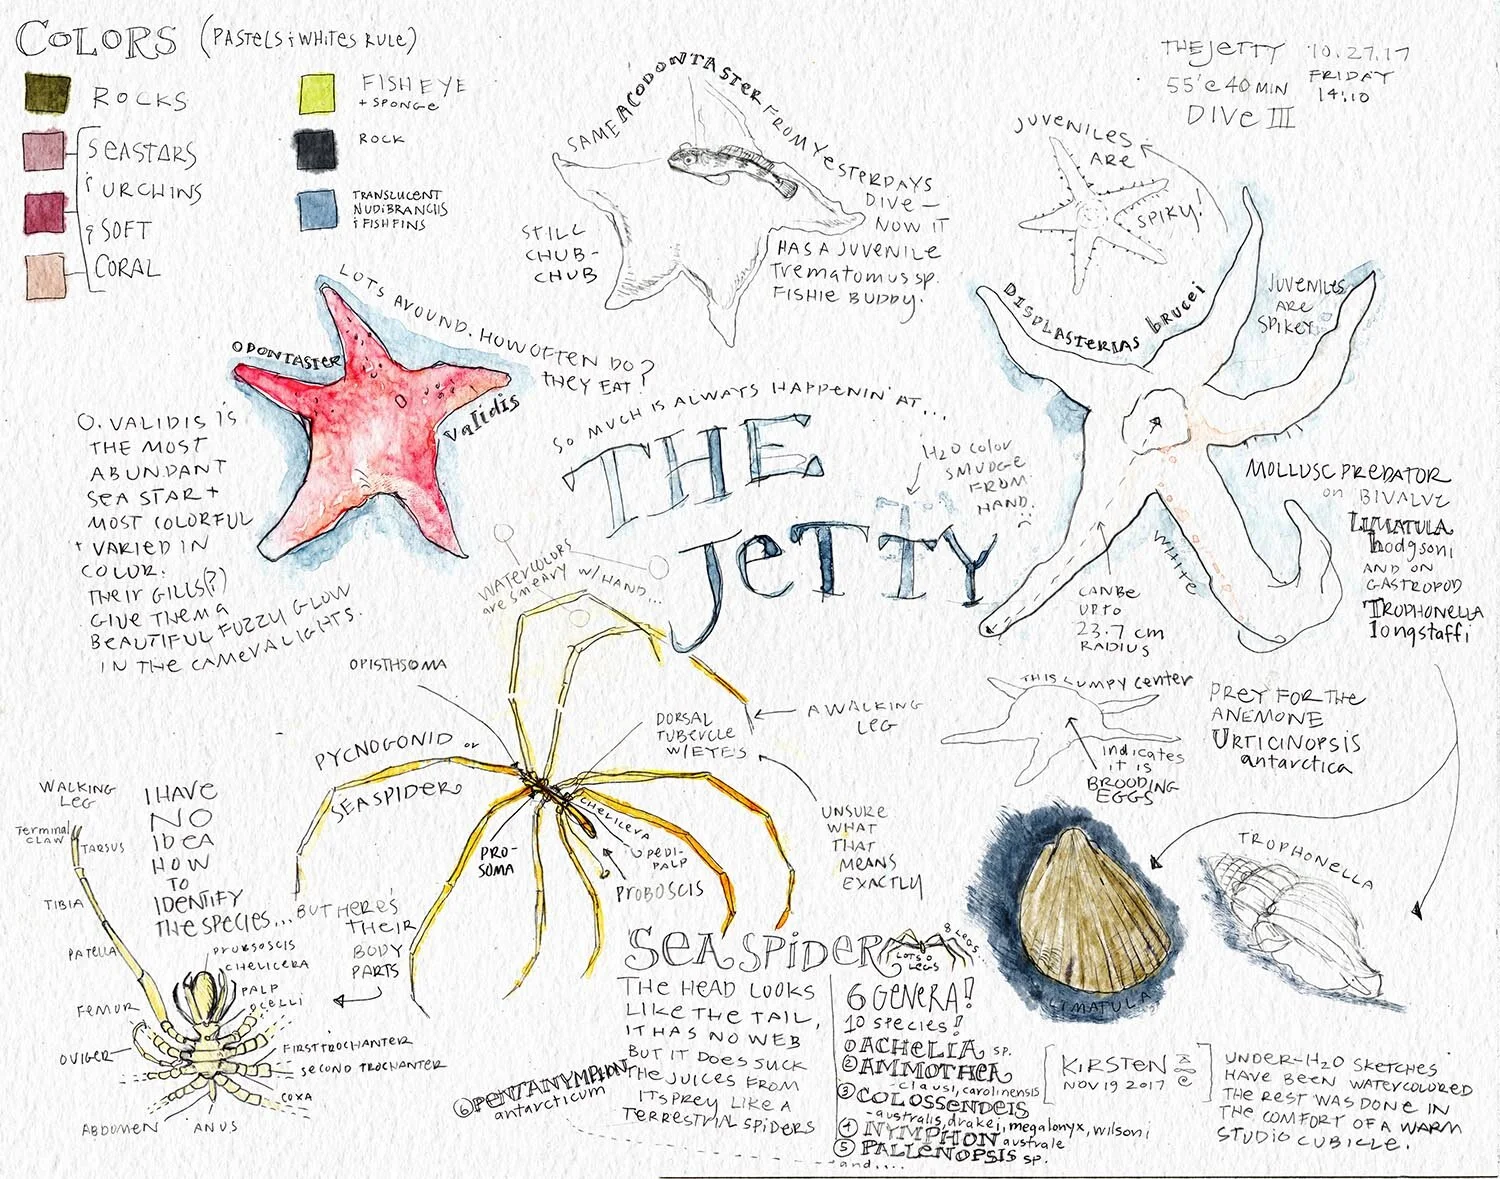 COLORS (PASTELS & WHITES RULE)
ROCKS
SEASTARS
& URCHINS
& SOFT
CORAL
FISH EYE
+ SPONGE
ROCK
TRANSLUCENT
NUDIBRANCHS
& FISH FINS
SAME ACODONTASTER FROM YESTERDAYS
DIVE —
NOW IT
HAS A JUVENILE
Trematomus sp.
FISHIE BUDDY.
STILL
CHUB-
CHUB
THE JETTY 10.27.17
55' @ 40 MIN FRIDAY
14:10
DIVE III
JUVENILES
ARE
SPIKY!
DISPLASTERIAS brucei
JUVENILES
ARE
SPIKEY
LOTS AROUND. HOW OFTEN DO
THEY EAT?
ODONTASTER
validis
O. VALIDIS IS
THE MOST
ABUNDANT
SEA STAR +
MOST COLORFUL
+ VARIED IN
COLOR.
THEIR GILLS(?)
GIVE THEM A
BEAUTIFUL FUZZY GLOW
IN THE CAMERA LIGHTS.
SO MUCH IS ALWAYS HAPPENIN' AT...
THE
JETTY
H2O color
SMUDGE
FROM
HAND.
WATERCOLORS
are smeary w/ HAND...
MOLLUSC PREDATOR
on BIVALVE
LIMATULA
hodgsoni
AND ON
GASTROPOD
TROPHONELLA
longstaffi
WHITE
CAN BE
UP TO
23.7 cm
RADIUS
THIS LUMPY center
indicates
it is
BROODING
EGGS
PREY FOR THE
ANEMONE
URTICINOPSIS
antarctica
OPISTHSOMA
PYCNOGONID or
SEASPIDER
DORSAL
TUBERCLE
W/EYE'S
A WALKING
LEG
UNSURE
WHAT
THAT
MEANS
EXACTLY
CHELICERA
PEDI-
PALP
PROBOSCIS
PRO-
SOMA
WALKING
LEG
Terminal
CLAW
TARSUS
TIBIA
PATELLA
FEMUR
OVIGER
I HAVE
NO
IDEA
HOW
TO
IDENTIFY
THE SPECIES... BUT HERE'S
THEIR
BODY
PARTS
PROBSOSCIS
CHELICERA
PALP
OCELLI
FIRST TROCHANTER
SECOND TROCHANTER
COXA
ABDOMEN
ANUS
SEA SPIDER
8 LEGS
LOTS O
LEGS
THE HEAD LOOKS
LIKE THE TAIL,
IT HAS NO WEB
BUT IT DOES SUCK
THE JUICES FROM
ITS PREY LIKE A
TERRESTRIAL SPIDERS
6 GENERA!
10 species!
① ACHELIA sp.
② AMMOTHEA
- clausi, carolinensis
③ COLOSSENDEIS
- australis, drakei, megalonyx, wilsoni
④ NYMPHON australe
⑤ PALLENOPSIS sp.
and....
⑥ PENTANYMPHON
antarcticum
LIMATULA
TROPHONELLA
[KIRSTEN
NOV 19 2017]
UNDER-H2O SKETCHES
HAVE BEEN WATERCOLORED
THE REST WAS DONE IN
THE COMFORT OF A WARM
STUDIO CUBICLE.